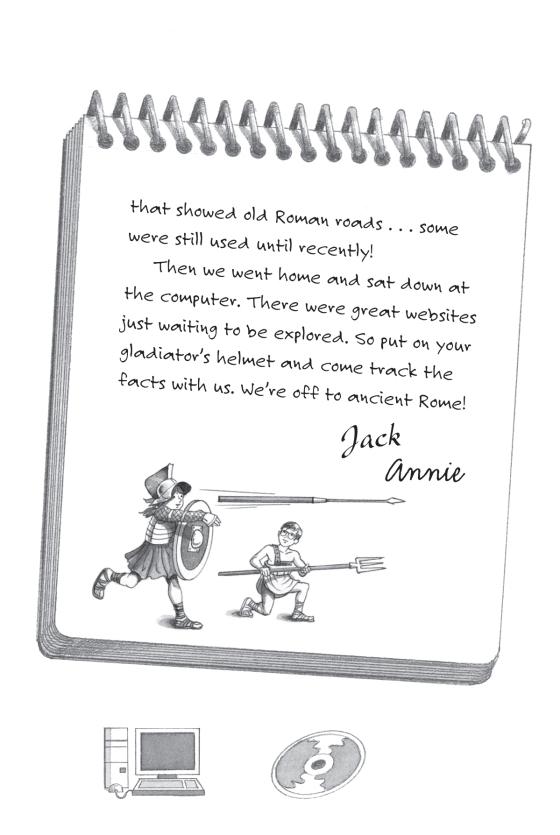 that showed old Roman roads . . . some
were still used until recently!
Then we went home and sat down at
the computer. There were great websites
just waiting to be explored. So put on your
gladiator's helmet and come track the
facts with us. We're off to ancient Rome!
Jack
Annie